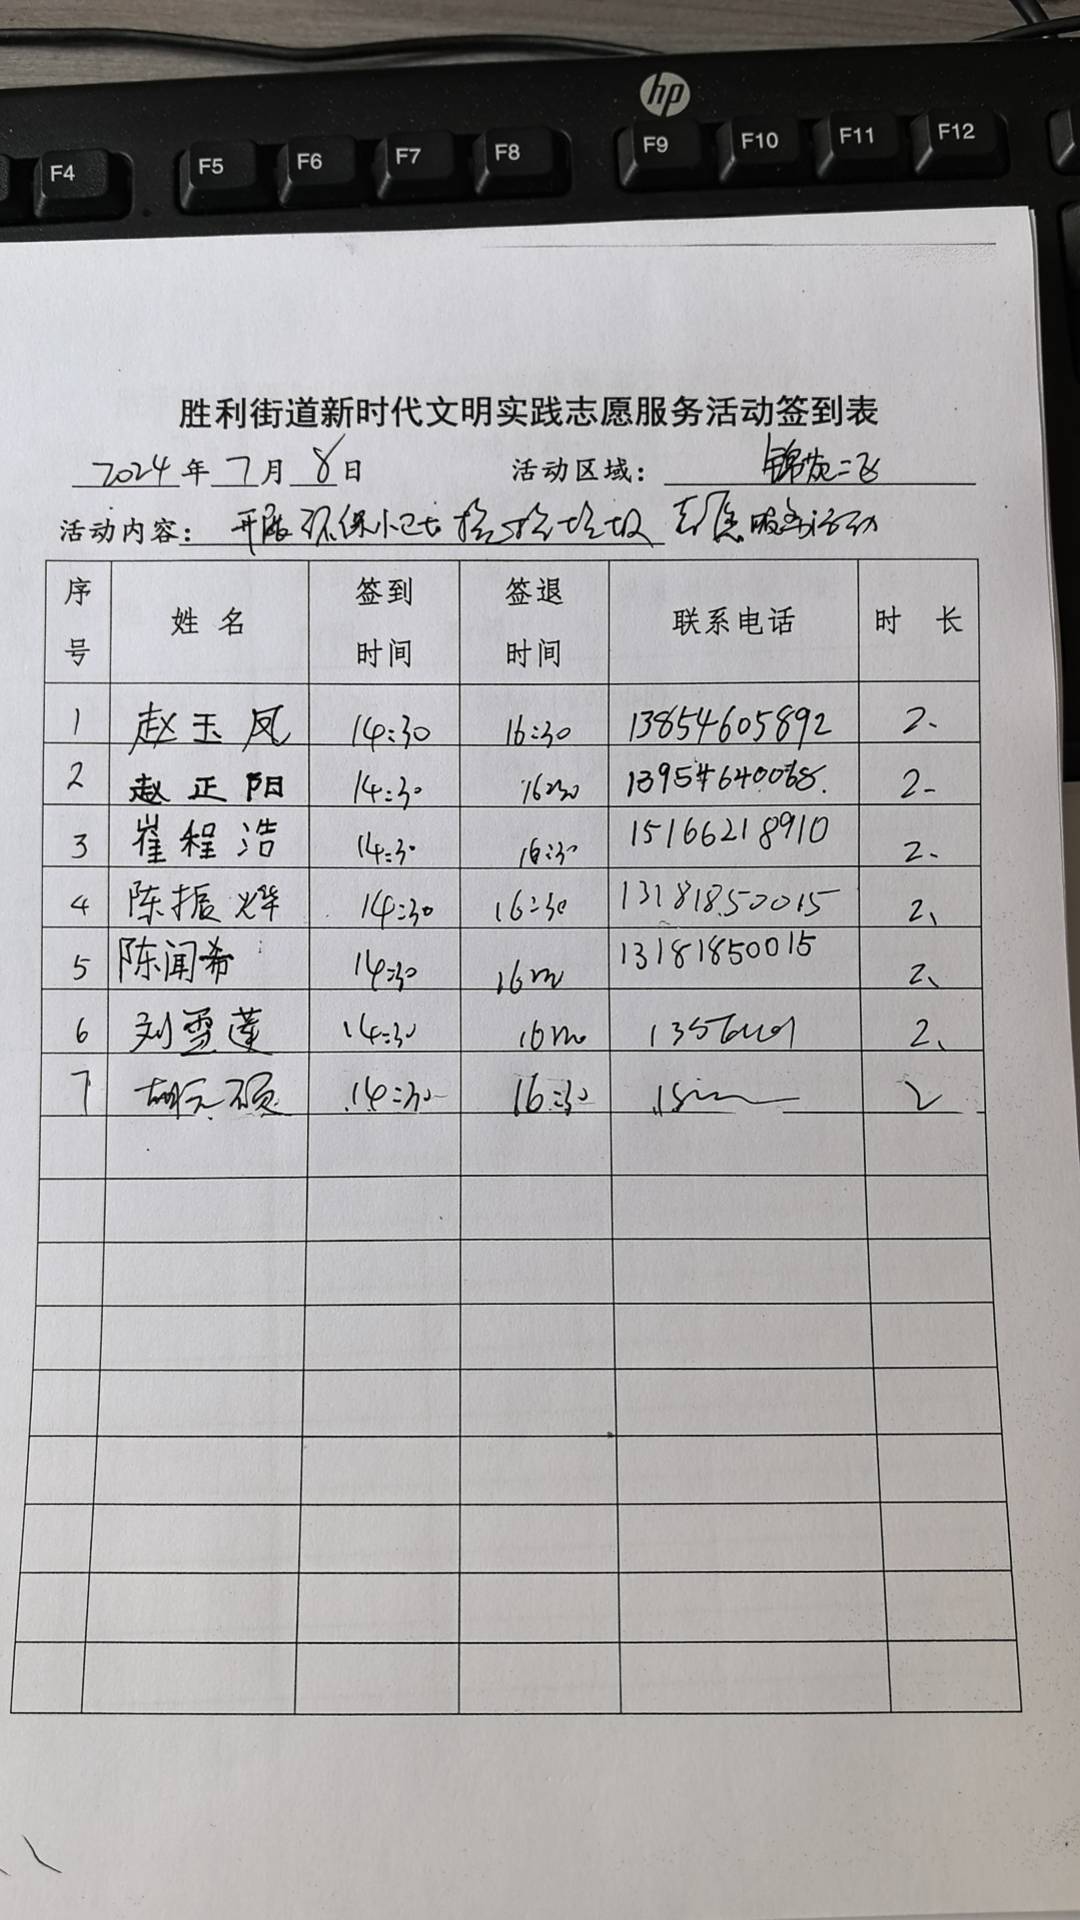 hp
F4 F5 F6 F7 F8 F9 F10 F11 F12
胜利街道新时代文明实践志愿服务活动签到表
2024年7月8日 活动区域：锦苑二
活动内容：开展环保小卫士捡捡垃圾志愿服务活动
序号 姓名 签到时间 签退时间 联系电话 时长
1 赵玉凤 14:30 16:30 13854605892 2、
2 赵正阳 14:30 16:30 13954640068. 2-
3 崔程浩 14:30 16:30 15166218910 2、
4 陈振烨 14:30 16:30 13181850015 2、
5 陈闻希 14:30 16 13181850015 2、
6 刘雪莲 14:30 16 2、
7 胡元硕 14:30 16:30 2